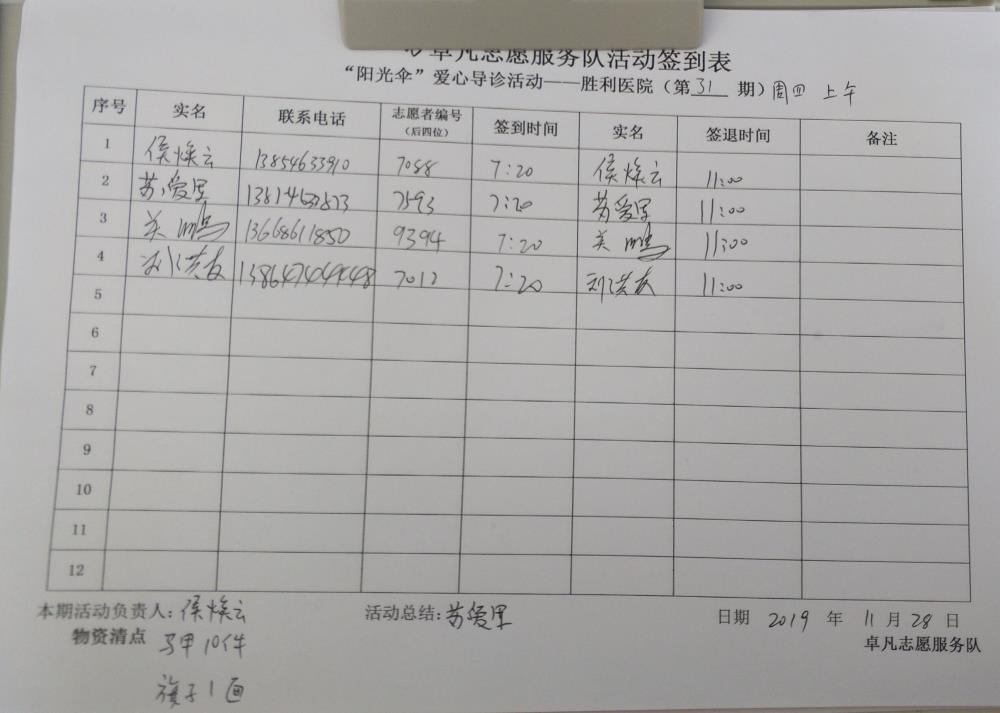 卓凡志愿服务队活动签到表
“阳光伞”爱心导诊活动——胜利医院（第31期）周四 上午
序号 实名 联系电话 志愿者编号（后四位） 签到时间 实名 签退时间 备注
1 侯焕云 13854633910 7088 7:20 侯焕云 11:00
2 苏爱里 7593 7:20 苏爱里 11:00
3 鹏 13668611850 9394 7:20 鹏 11:00
4 刘洪友 7012 7:20 刘洪友 11:00
5
6
7
8
9
10
11
12
本期活动负责人：侯焕云 活动总结：苏爱里 日期 2019 年 11 月 28 日
物资清点 马甲10件 卓凡志愿服务队
旗子1面